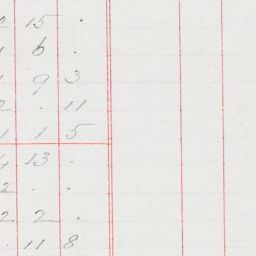 2 15 .
1 6 .
1 9 3
2 . 11
1 1 5
4 13 .
2 . .
2 2 .
. 11 8